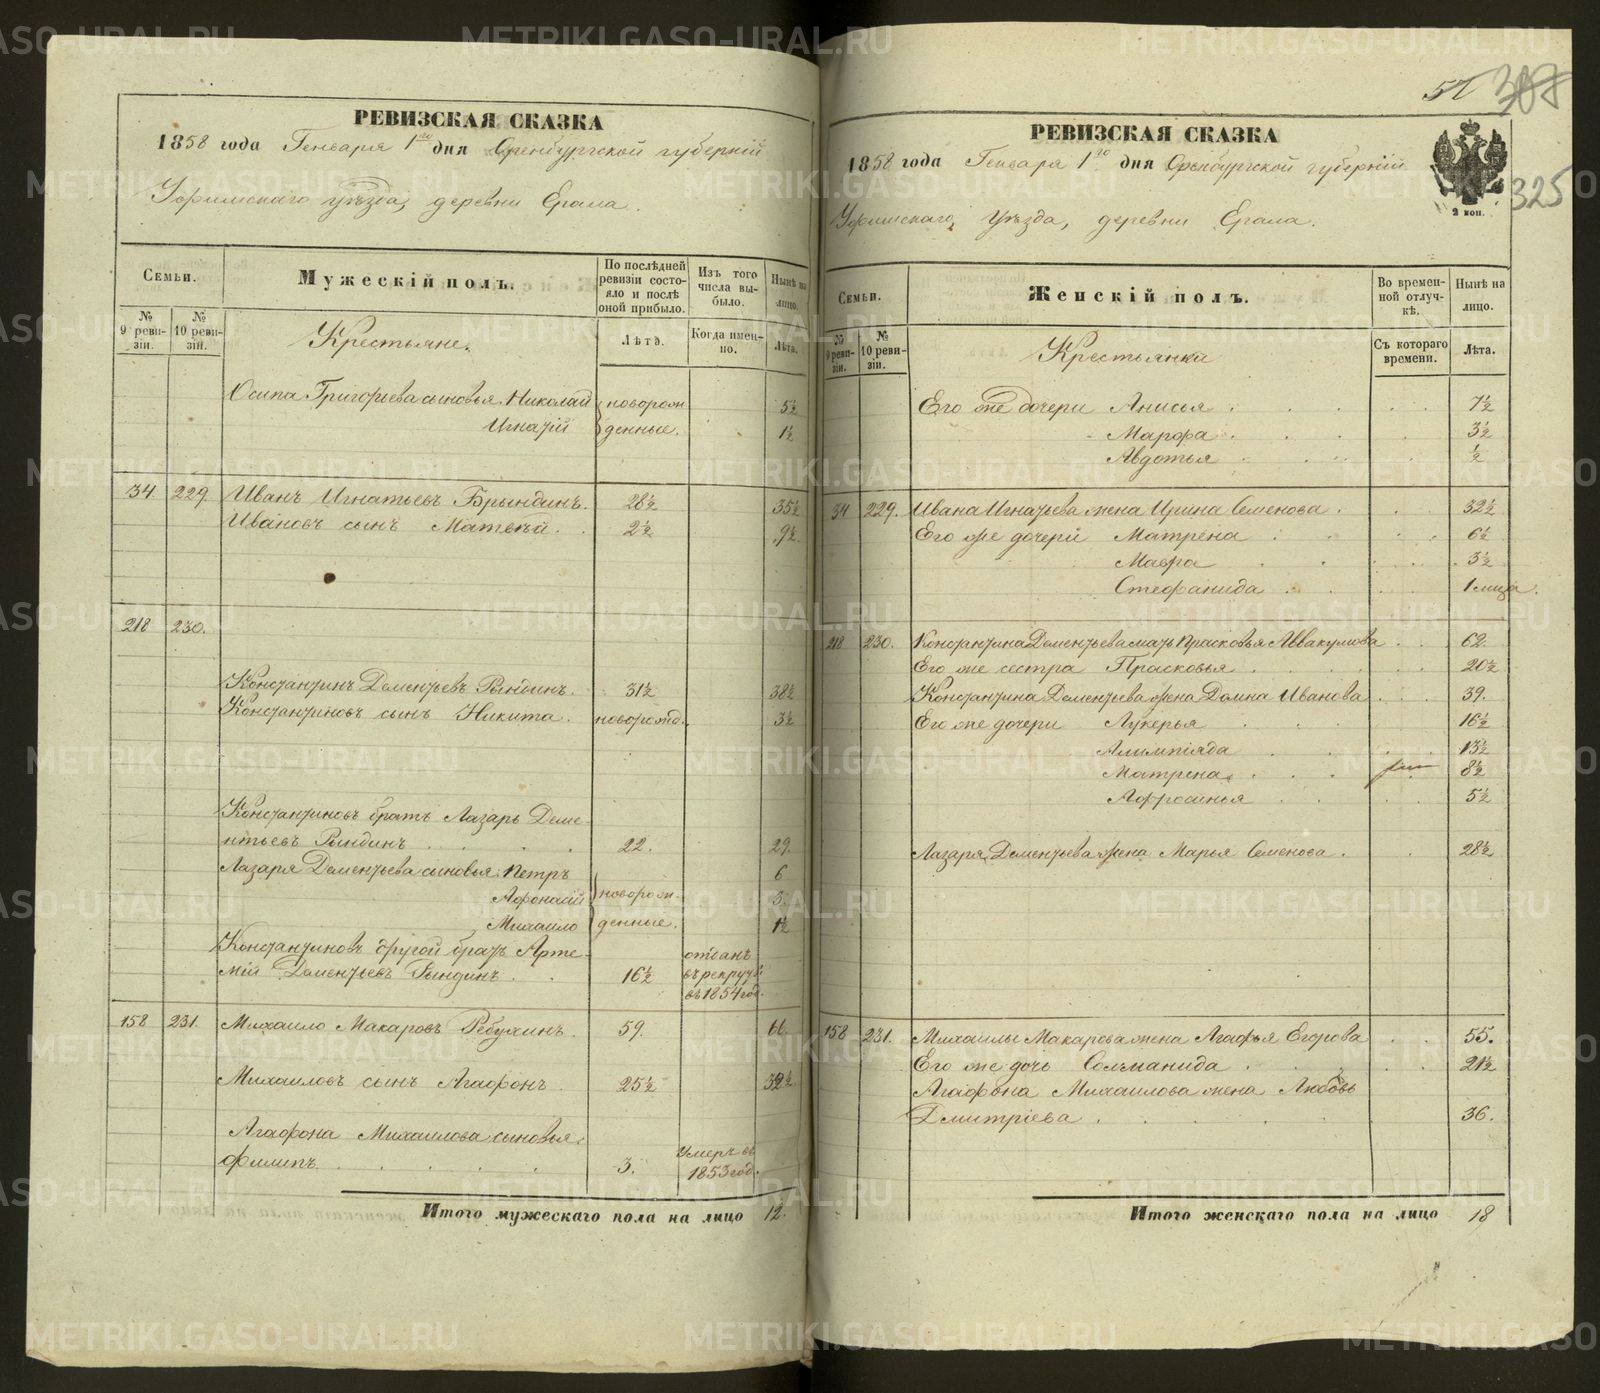 РЕВИЗСКАЯ СКАЗКА
1858 года Генваря 1го дня Оренбургской губерніи
Уфимскаго уѣзда, деревни Ерала.
Семьи.
Мужескій полъ.
По послѣдней ревизіи состояло и послѣ оной прибыло.
Изъ того числа выбыло.
Нынѣ на лицо.
№ 9 ревизіи.
№ 10 ревизіи.
Крестьяне.
Лѣта.
Когда именно.
Лѣта.
Осипа Григорьева сыновья Николай новорож 5½
Игнатій денные. 1½
34 229 Иванъ Игнатьевъ Брындинъ. 28½ 35½
Ивановъ сынъ Матвѣй. 2½ 9½
218 230.
Константинъ Дементьевъ Рындинъ. 31½ 38½
Константиновъ сынъ Никита. новорожд. 3½
Константиновъ братъ Лазарь Деме-
нтьевъ Рындинъ 22. 29.
Лазаря Дементьева сыновья: Петръ 6
Афонасій новорож- 3.
Михаило денные. 1½
Константиновъ другой братъ Арте- отданъ
мій Дементьевъ Рындинъ 16½ въ рекруты
въ 1854 год.
158 231. Михаило Макаровъ 59. 66.
Михаиловъ сынъ Агафонъ. 25½ 32½
Агафона Михаилова сыновья: Умеръ въ
Филипъ 3. 1853 год.
Итого мужескаго пола на лицо 12.
57 308
РЕВИЗСКАЯ СКАЗКА
1858 года Генваря 1го дня Оренбургской губерніи
2 коп.
325
Уфимскаго уѣзда, деревни Ерала.
Семьи.
Женскій полъ.
Во временной отлучкѣ.
Нынѣ на лицо.
№ 9 ревизіи.
№ 10 ревизіи.
Крестьянки
Съ котораго времени.
Лѣта.
Его же дочери Анисья 7½
Марфа 3½
Авдотья ½
34 229. Ивана Игнатьева жена Ирина Семенова 32½
Его же дочери Матрена 6½
Мавра 3½
Стефанида 1 мѣсяца.
218 230. Константина Дементьева мать Прасковья Аввакумова 62.
Его же сестра Прасковья 20½
Константина Дементьева жена Домна Иванова 39.
Его же дочери Лукерья 16½
Алимпіяда 13½
Матрена 8½
Афросинья 5½
Лазаря Дементьева жена Марья Семенова 28½
158 231. Михаилы Макарова жена Агафья Егорова 55.
Его же дочь Соломанида 21½
Агафона Михаилова жена Любовь
Дмитріева 36.
Итого женскаго пола на лицо 18
METRIKI.GASO-URAL.RU